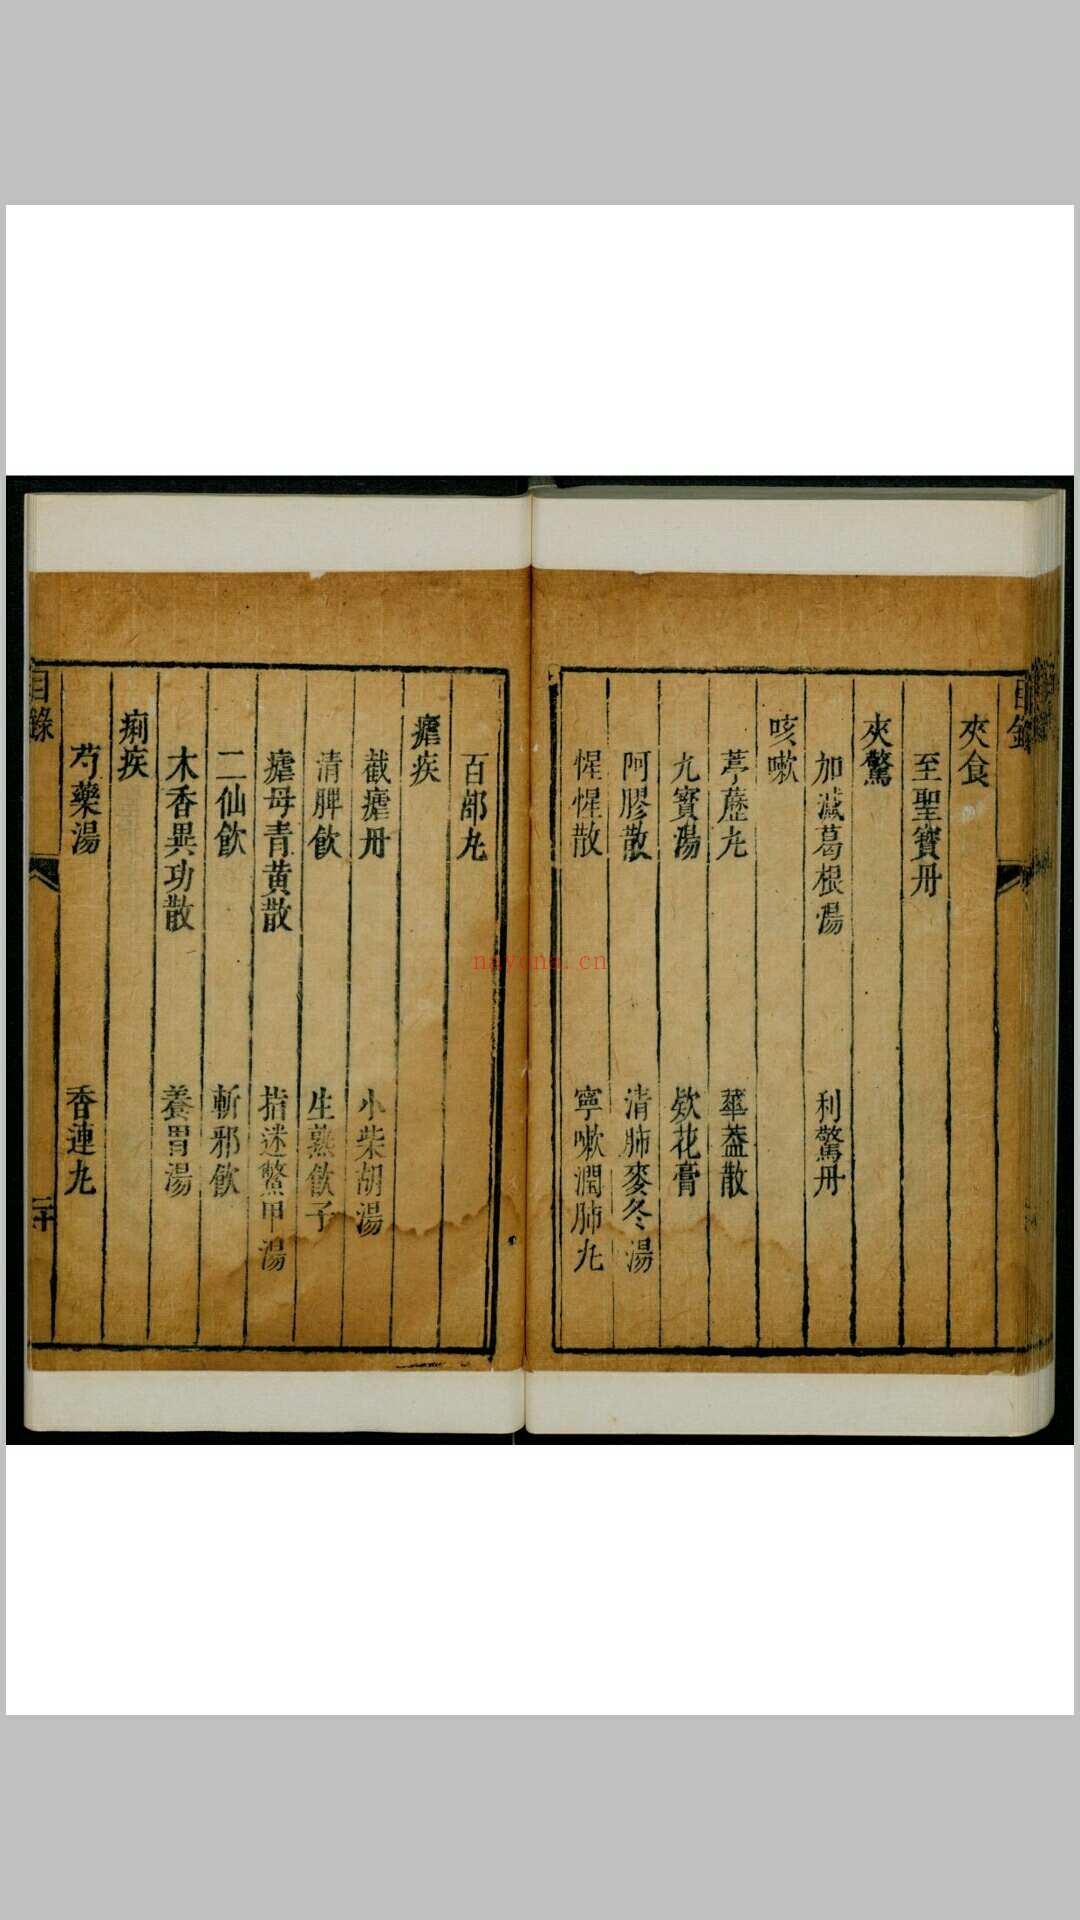 目錄
夾食
至聖寶丹
夾驚
加減葛根湯 利驚丹
咳嗽
葶藶丸 華蓋散
九寳湯 欵花膏
阿膠散 清肺麥冬湯
惺惺散 寧嗽潤肺丸
百部丸
瘧疾
截瘧丹 小柴胡湯
清脾飲 生熟飲子
瘧母青黃散 指迷鱉甲湯
二仙飲 斬邪飲
木香異功散 養胃湯
痢疾
芍藥湯 香連丸
目錄 二十
nayona.cn